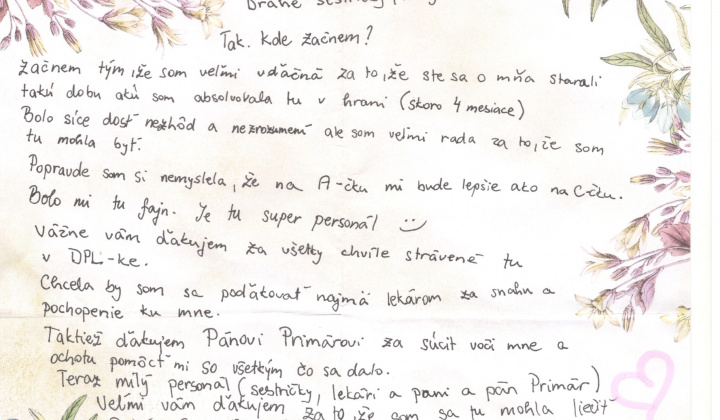 Drahé
Tak. Kde začnem?
Začnem tým, že som veľmi vďačná za to, že ste sa o mňa starali
takú dobu akú som absolvovala tu v hrani (skoro 4 mesiace)
Bolo síce dosť nezhôd a nezrozumení ale som veľmi rada za to, že som
tu mohla byť.
Popravde som si nemyslela, že na A-čku mi bude lepšie ako na Cčku.
Bolo mi tu fajn. Je tu super personál
Vážne vám ďakujem za všetky chvíle strávené tu
v DPL-ke.
Chcela by som sa poďakovať najmä lekárom za snahu a
pochopenie ku mne.
Taktiež ďakujem Pánovi Primárovi za súcit voči mne a
ochotu pomôcť mi so všetkým čo sa dalo.
Teraz milý personál (sestričky, lekári a pani a pán Primár)
Veľmi vám ďakujem za to, že som sa tu mohla liečiť